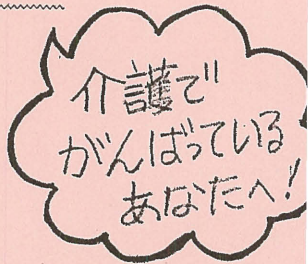 介護で
がんばっている
あなたへ!